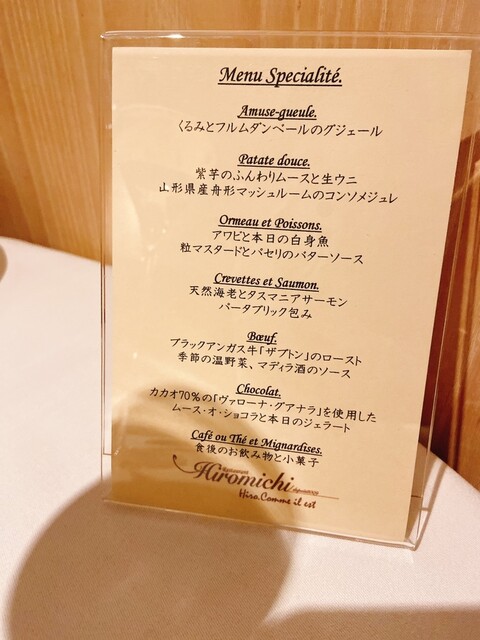 Menu Specialité.
Amuse-gueule.
くるみとフルムダンベールのグジェール
Patate douce.
紫芋のふんわりムースと生ウニ
山形県産舟形マッシュルームのコンソメジュレ
Ormeau et Poissons.
アワビと本日の白身魚
粒マスタードとパセリのバターソース
Crevettes et Saumon.
天然海老とタスマニアサーモン
パータブリック包み
Bœuf.
ブラックアンガス牛「ザブトン」のロースト
季節の温野菜、マディラ酒のソース
Chocolat.
カカオ70%の「ヴァローナ・グアナラ」を使用した
ムース・オ・ショコラと本日のジェラート
Café ou Thé et Mignardises.
食後のお飲み物と小菓子
Restaurant
Hiromichi
Hiro.Comme il est